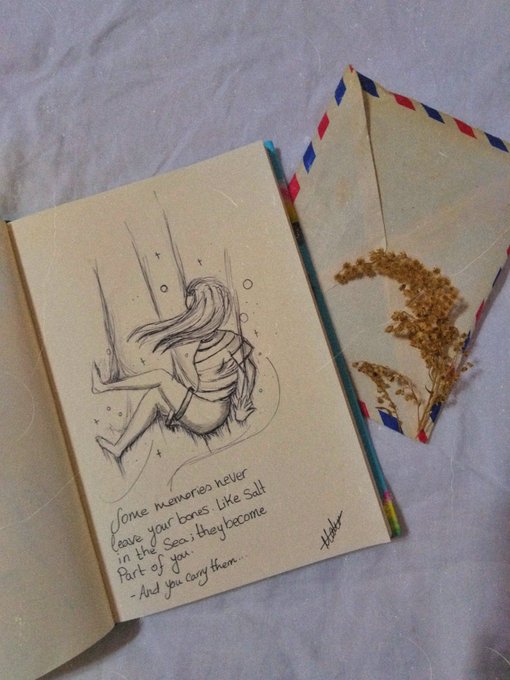 Some memories never
leave your bones. Like Salt
in the Sea; they become
Part of you.
- And you carry them...